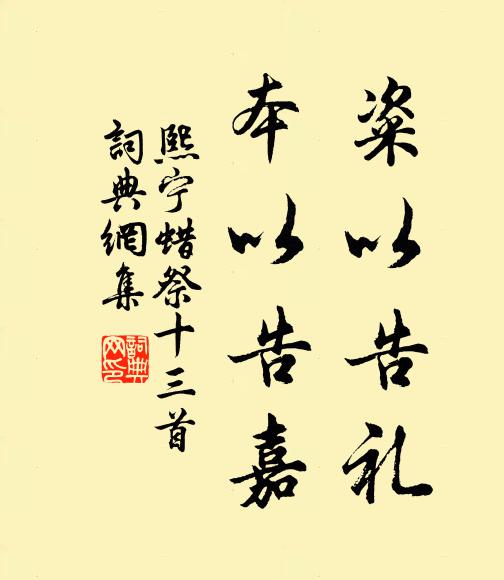 粢以告礼
本以告嘉
熙宁蜡祭十三首
詞典網集
詞典网印